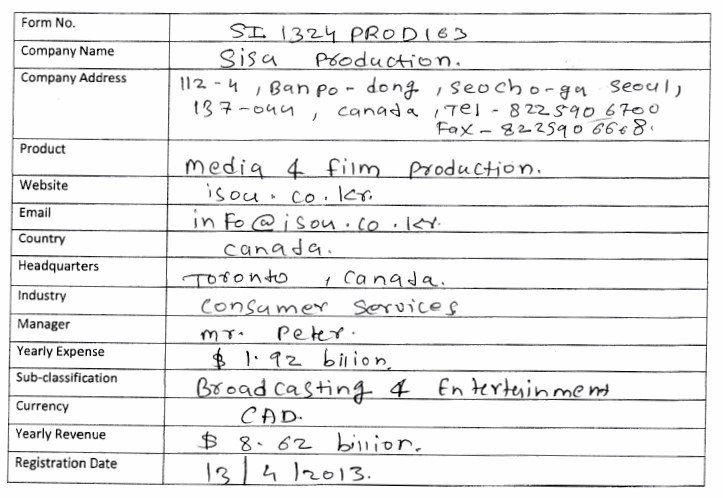 Form No. SI 1324 PROD163
Company Name Sisa Production.
Company Address 112-4, Banpo-dong, Seocho-gu Seoul,
137-044, Canada, Tel - 822590 6700
Fax - 822590 6668.
Product media & film production.
Website isou.co.kr.
Email info@isou.co.kr.
Country Canada.
Headquarters Toronto, Canada.
Industry Consumer Services
Manager mr. Peter.
Yearly Expense $ 1.92 billion.
Sub-classification Broadcasting & Entertainment
Currency CAD.
Yearly Revenue $ 8.62 billion.
Registration Date 13/4/2013.